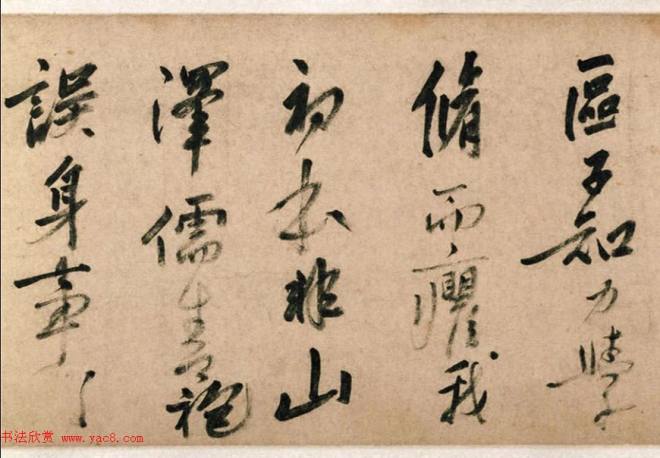 區子知力學
脩而癯我
初本非山
澤儒青袍
誤身事了
书法欣赏 www.yac8.com